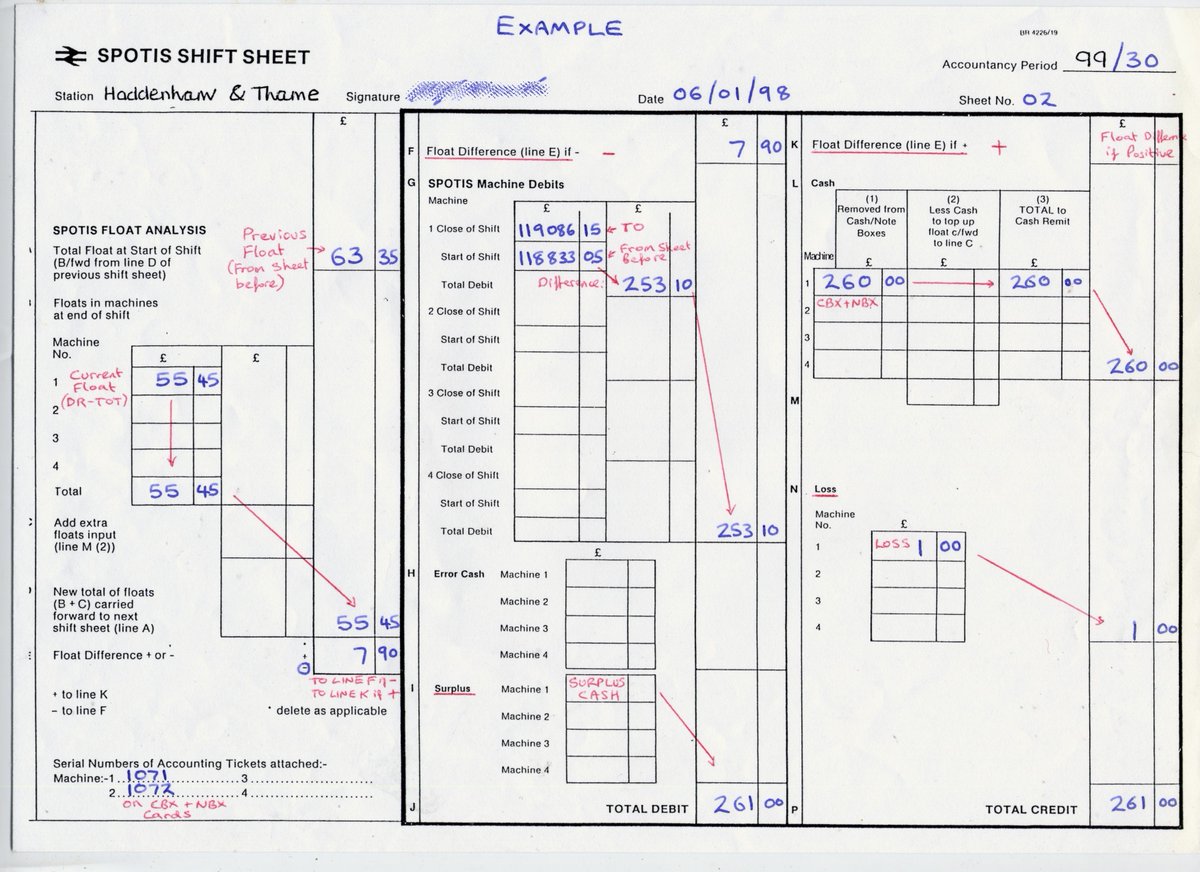 EXAMPLE
BR 4226/19
SPOTIS SHIFT SHEET
Accountancy Period 99/30
Station Haddenham & Thame Signature
Date 06/01/98
Sheet No. 02
£
SPOTIS FLOAT ANALYSIS
Total Float at Start of Shift
(B/fwd from line D of
previous shift sheet)
Previous
Float
(From Sheet
before)
63 35
Floats in machines
at end of shift
Machine
No.
£ £
1 Current Float (DR-TOT) 55 45
2
3
4
Total 55 45
Add extra
floats input
(line M (2))
New total of floats
(B + C) carried
forward to next
shift sheet (line A)
55 45
Float Difference + or -
+
-
7 90
TO LINE F if -
TO LINE K if +
+ to line K
– to line F
* delete as applicable
Serial Numbers of Accounting Tickets attached:-
Machine:-1 1071 3
2 1072 4
on CBX + NBX
Cards
£
F Float Difference (line E) if - - 7 90
G SPOTIS Machine Debits
Machine
£ £
1 Close of Shift 119086 15 TO
Start of Shift 118833 05 From Sheet Before
Total Debit Difference 253 10
2 Close of Shift
Start of Shift
Total Debit
3 Close of Shift
Start of Shift
Total Debit
4 Close of Shift
Start of Shift
Total Debit 253 10
£
H Error Cash Machine 1
Machine 2
Machine 3
Machine 4
I Surplus Machine 1 SURPLUS CASH
Machine 2
Machine 3
Machine 4
J TOTAL DEBIT 261 00
£
K Float Difference (line E) if + +
Float Differen
if Positive
L Cash
(1)
Removed from
Cash/Note
Boxes
(2)
Less Cash
to top up
float c/fwd
to line C
(3)
TOTAL to
Cash Remit
Machine £ £ £
1 260 00 260 00
2 CBX+NBX
3
4 260 00
M
N Loss
Machine
No.
£
1 LOSS 1 00
2
3
4 1 00
P TOTAL CREDIT 261 00